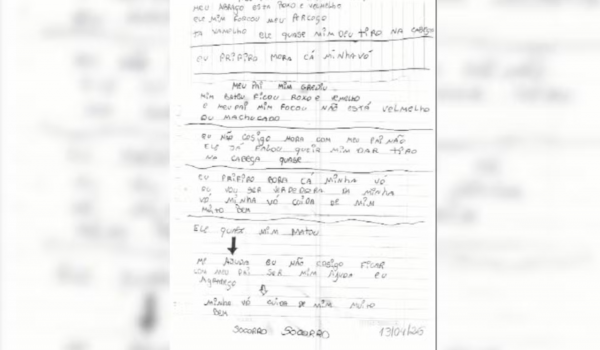 MEU BARAÇO ESTA ROXO E VERMELHO
ELE MIM FORCOU MEU PERCOÇO
TA VAMELHO ELE QUASE MIM DEU TIRO NA CABEÇA
EU PRIFIRO MORA CÁ MINHA VÓ
MEU PAI MIM
MIM FICOU ROXO E VEMELHO
E MEU PAI MIM FOCOU NÃO ESTÁ VELMELHO
OU MACHOCADO
EU NÃO COSIGO MORA COM MEU PAI NÃO
ELE JÁ FALOU QUEIA MIM DAR TIRO
NA CABEÇA QUASE
EU PRIFIRO CÁ MINHA VÓ
EU VOU SER DA MINHA
VÓ, MINHA VÓ CUIDA DE MIM
MUITO BEM
ELE QUASE MIM MATOU
MI AJUDA EU NÃO COSIGO FICAR
MEU PAI SER MIM AJUDA EU
MINHA VÓ CUIDA DE MIM MUITO
BEM
SOCORRO SOCORRO 13/01/26